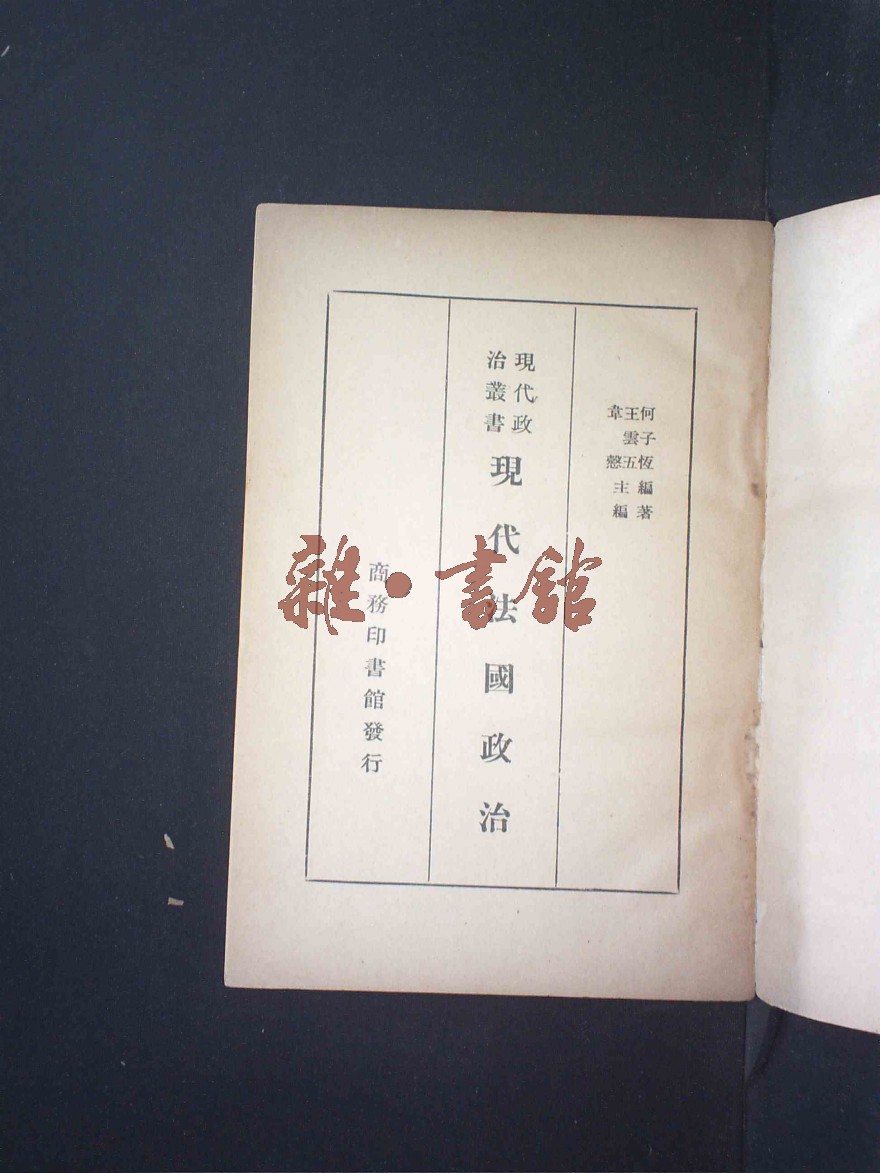 何子恆編著
王雲五
韋慤主編
現代政
治叢書
現代法國政治
商務印書館發行
雜·書館